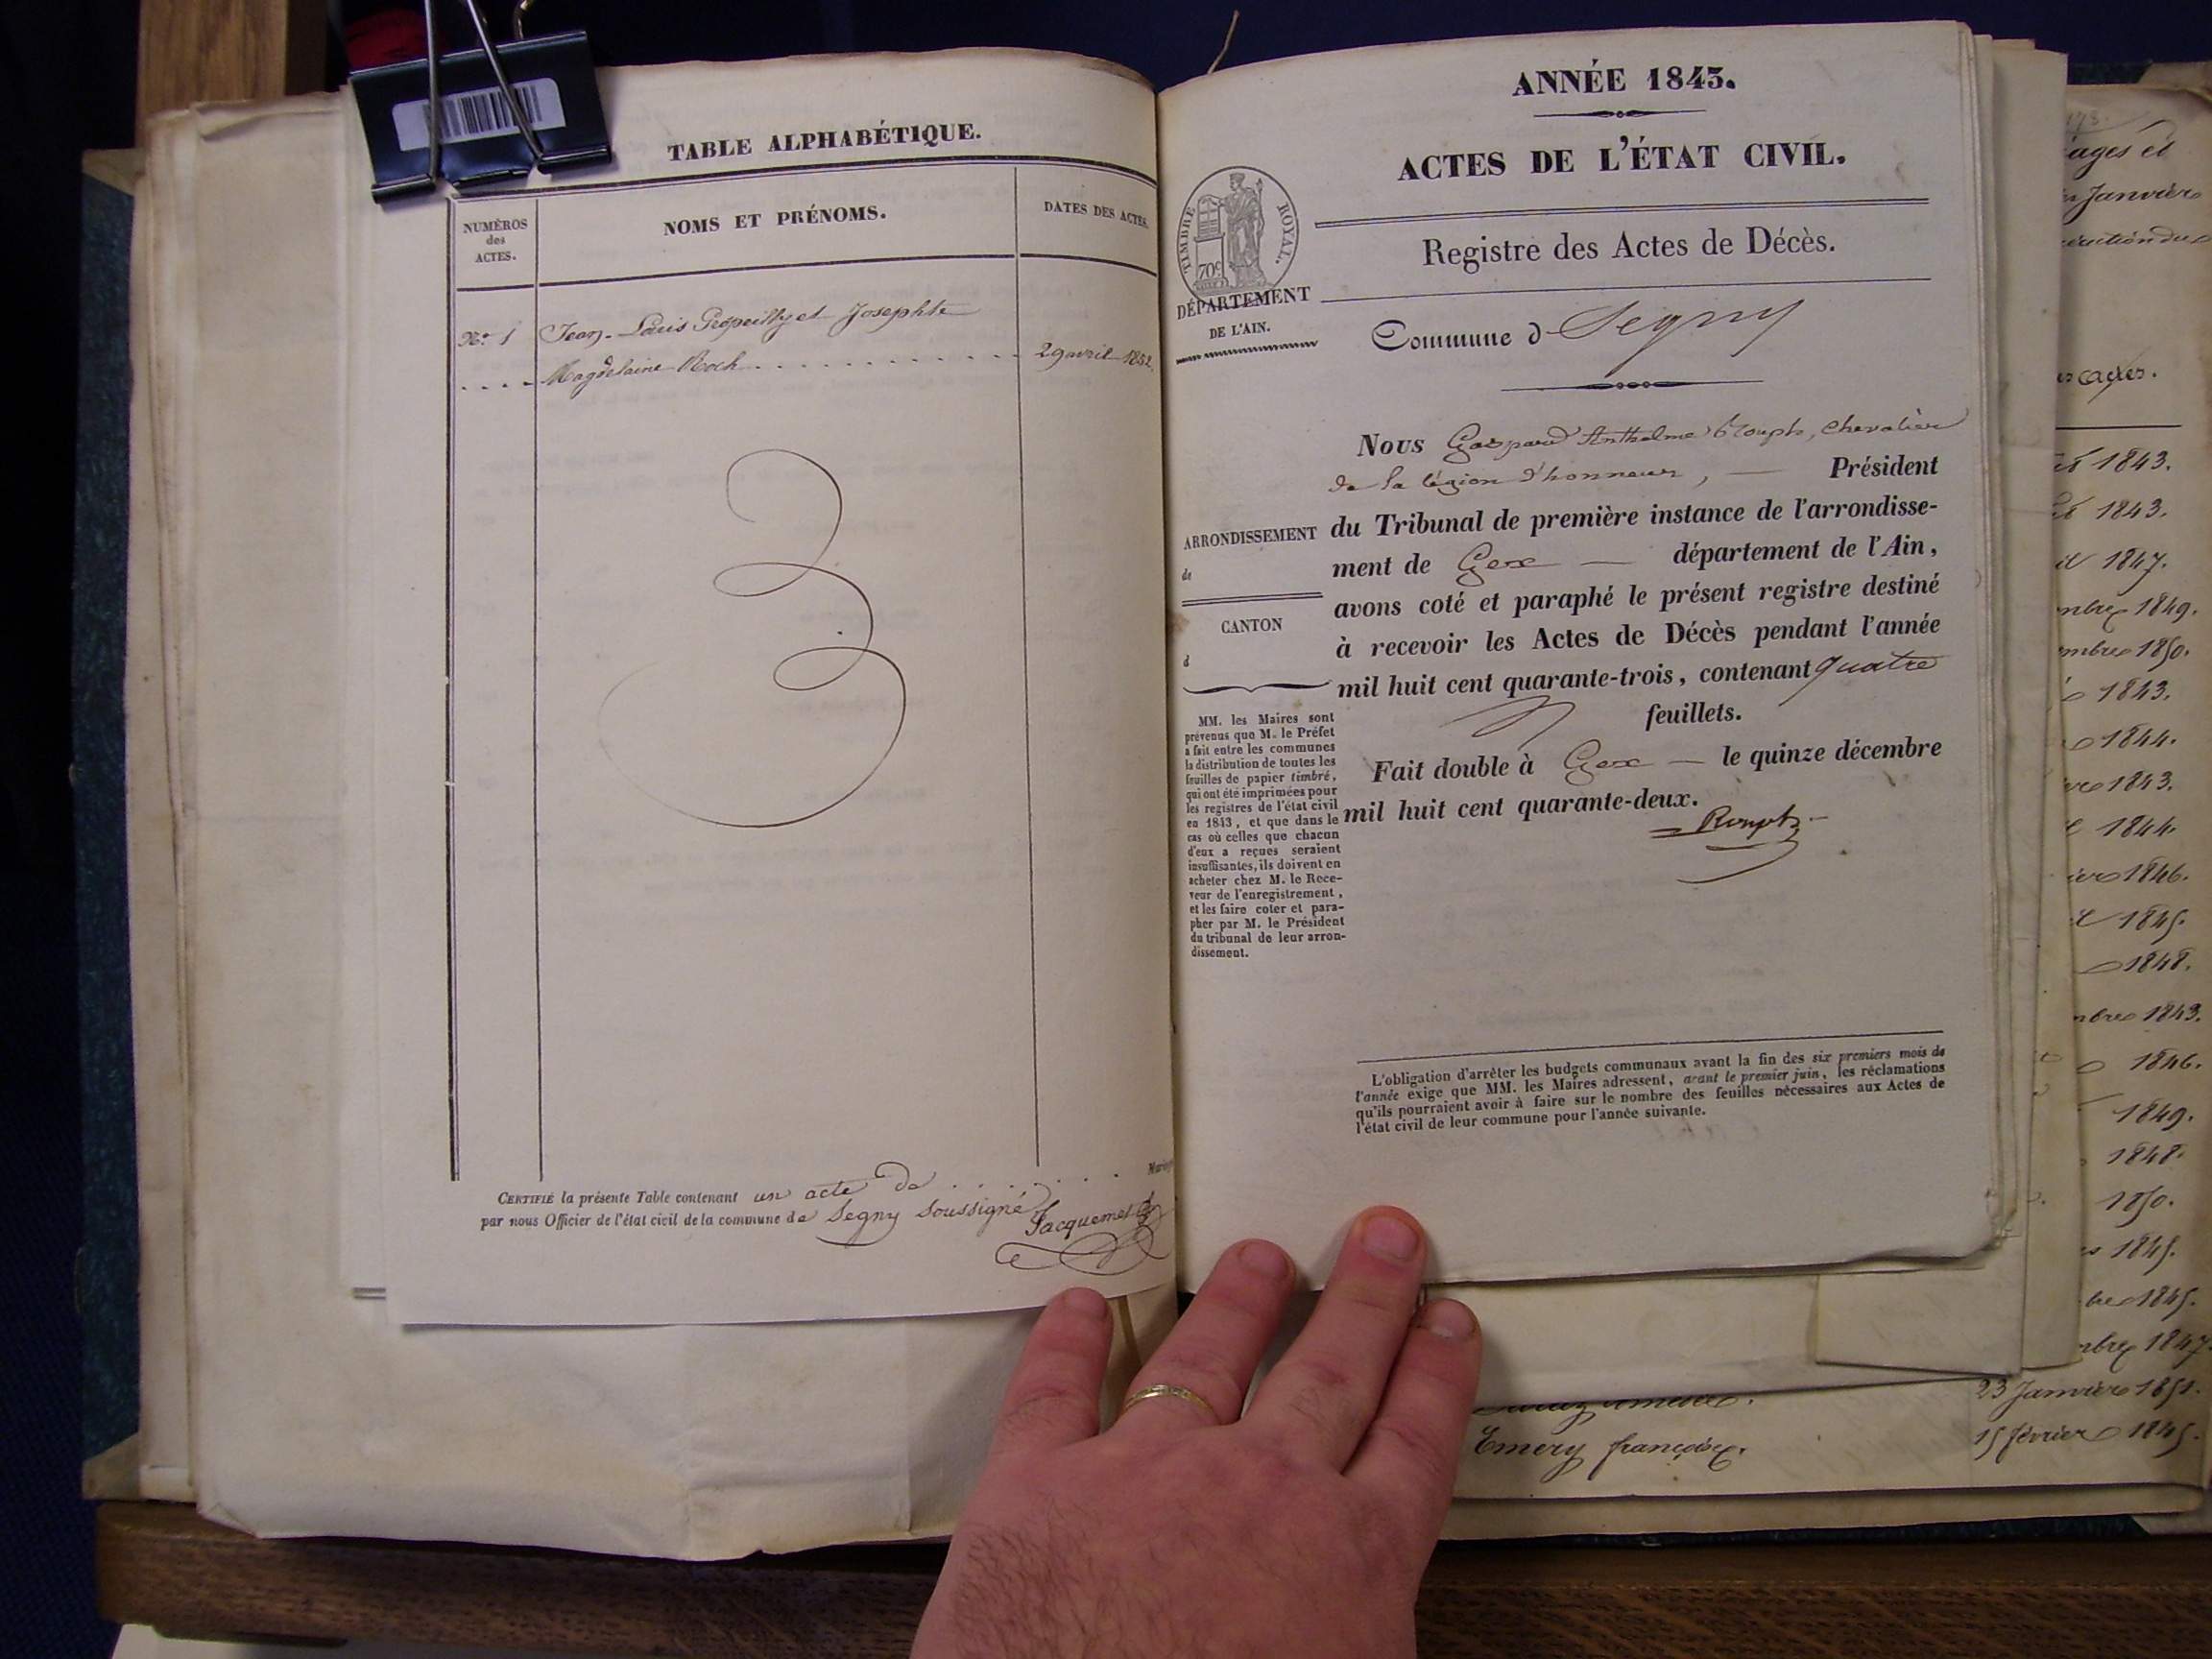 TABLE ALPHABÉTIQUE.
NUMÉROS
des
ACTES.
NOMS ET PRÉNOMS.
DATES DES ACTES.
No. 1 Jean-Louis et Josephte
Magdelaine Roch 29 avril
CERTIFIÉ la présente Table contenant un acte de
par nous Officier de l'état civil de la commune de Segny soussigné
Jacquemet
ANNÉE 1843.
ACTES DE L'ÉTAT CIVIL.
TIMBRE ROYAL.
70c
DÉPARTEMENT
DE L'AIN.
Registre des Actes de Décès.
Commune d Segny
ARRONDISSEMENT
de
CANTON
d
MM. les Maires sont
prévenus que M. le Préfet
a fait entre les communes
la distribution de toutes les
feuilles de papier timbré,
qui ont été imprimées pour
les registres de l'état civil
en 1843, et que dans le
cas où celles que chacun
d'eux a reçues seraient
insuffisantes, ils doivent en
acheter chez M. le Rece-
veur de l'enregistrement,
et les faire coter et para-
pher par M. le Président
du tribunal de leur arron-
dissement.
Nous Gaspard Anthelme Rouph, chevalier
de la légion d'honneur, — Président
du Tribunal de première instance de l'arrondisse-
ment de Gex — département de l'Ain,
avons coté et paraphé le présent registre destiné
à recevoir les Actes de Décès pendant l'année
mil huit cent quarante-trois, contenant quatre
feuillets.
Fait double à Gex — le quinze décembre
mil huit cent quarante-deux.
Rouph
L'obligation d'arrêter les budgets communaux avant la fin des six premiers mois de
l'année exige que MM. les Maires adressent, avant le premier juin, les réclamations
qu'ils pourraient avoir à faire sur le nombre des feuilles nécessaires aux Actes de
l'état civil de leur commune pour l'année suivante.
ages et
Janvier
actes.
1843.
1843.
1847.
1849.
1850.
1843.
1844.
1843.
1844.
1846.
1845.
1848.
1843.
1846.
1849.
1848.
1850.
1845.
1845.
1847.
23 Janvier 1851.
Emery françoise. 15 février 1845.